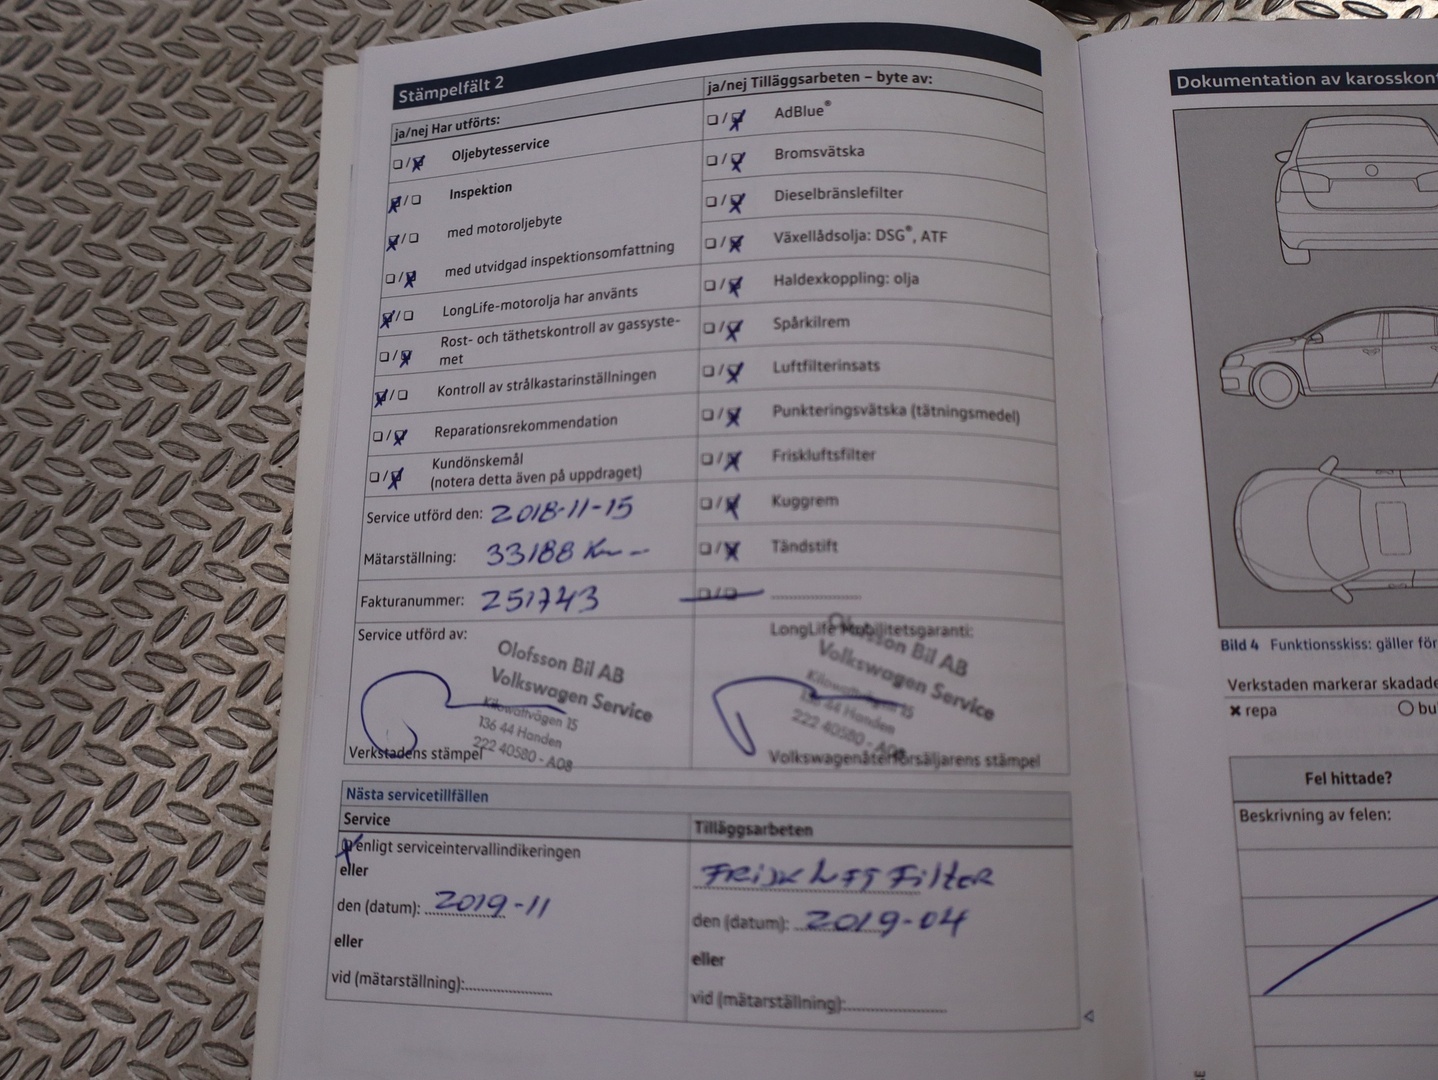 Stämpelfält 2
ja/nej Har utförts:
Oljebytesservice
Inspektion
med motoroljebyte
med utvidgad inspektionsomfattning
LongLife-motorolja har använts
Rost- och täthetskontroll av gassyste-
met
Kontroll av strålkastarinställningen
Reparationsrekommendation
Kundönskemål
(notera detta även på uppdraget)
Service utförd den: 2018-11-15
Mätarställning: 33188 Km
Fakturanummer: 251743
Service utförd av:
Olofsson Bil AB
Volkswagen Service
Kilowattvägen 15
136 44 Handen
222 40580 - A08
Verkstadens stämpel
ja/nej Tilläggsarbeten – byte av:
AdBlue®
Bromsvätska
Dieselbränslefilter
Växellådsolja: DSG®, ATF
Haldexkoppling: olja
Spårkilrem
Luftfilterinsats
Punkteringsvätska (tätningsmedel)
Friskluftsfilter
Kuggrem
Tändstift
LongLife Mobilitetsgaranti:
Olofsson Bil AB
Volkswagen Service
Kilowattvägen 15
136 44 Handen
222 40580 - A08
Volkswagenåterförsäljarens stämpel
Nästa servicetillfällen
Service
enligt serviceintervallindikeringen
eller
den (datum): 2019-11
eller
vid (mätarställning):
Tilläggsarbeten
Friskluft Filter
den (datum): 2019-04
eller
vid (mätarställning):
Dokumentation av karosskon
Bild 4 Funktionsskiss: gäller för
Verkstaden markerar skadade
repa
bu
Fel hittade?
Beskrivning av felen: